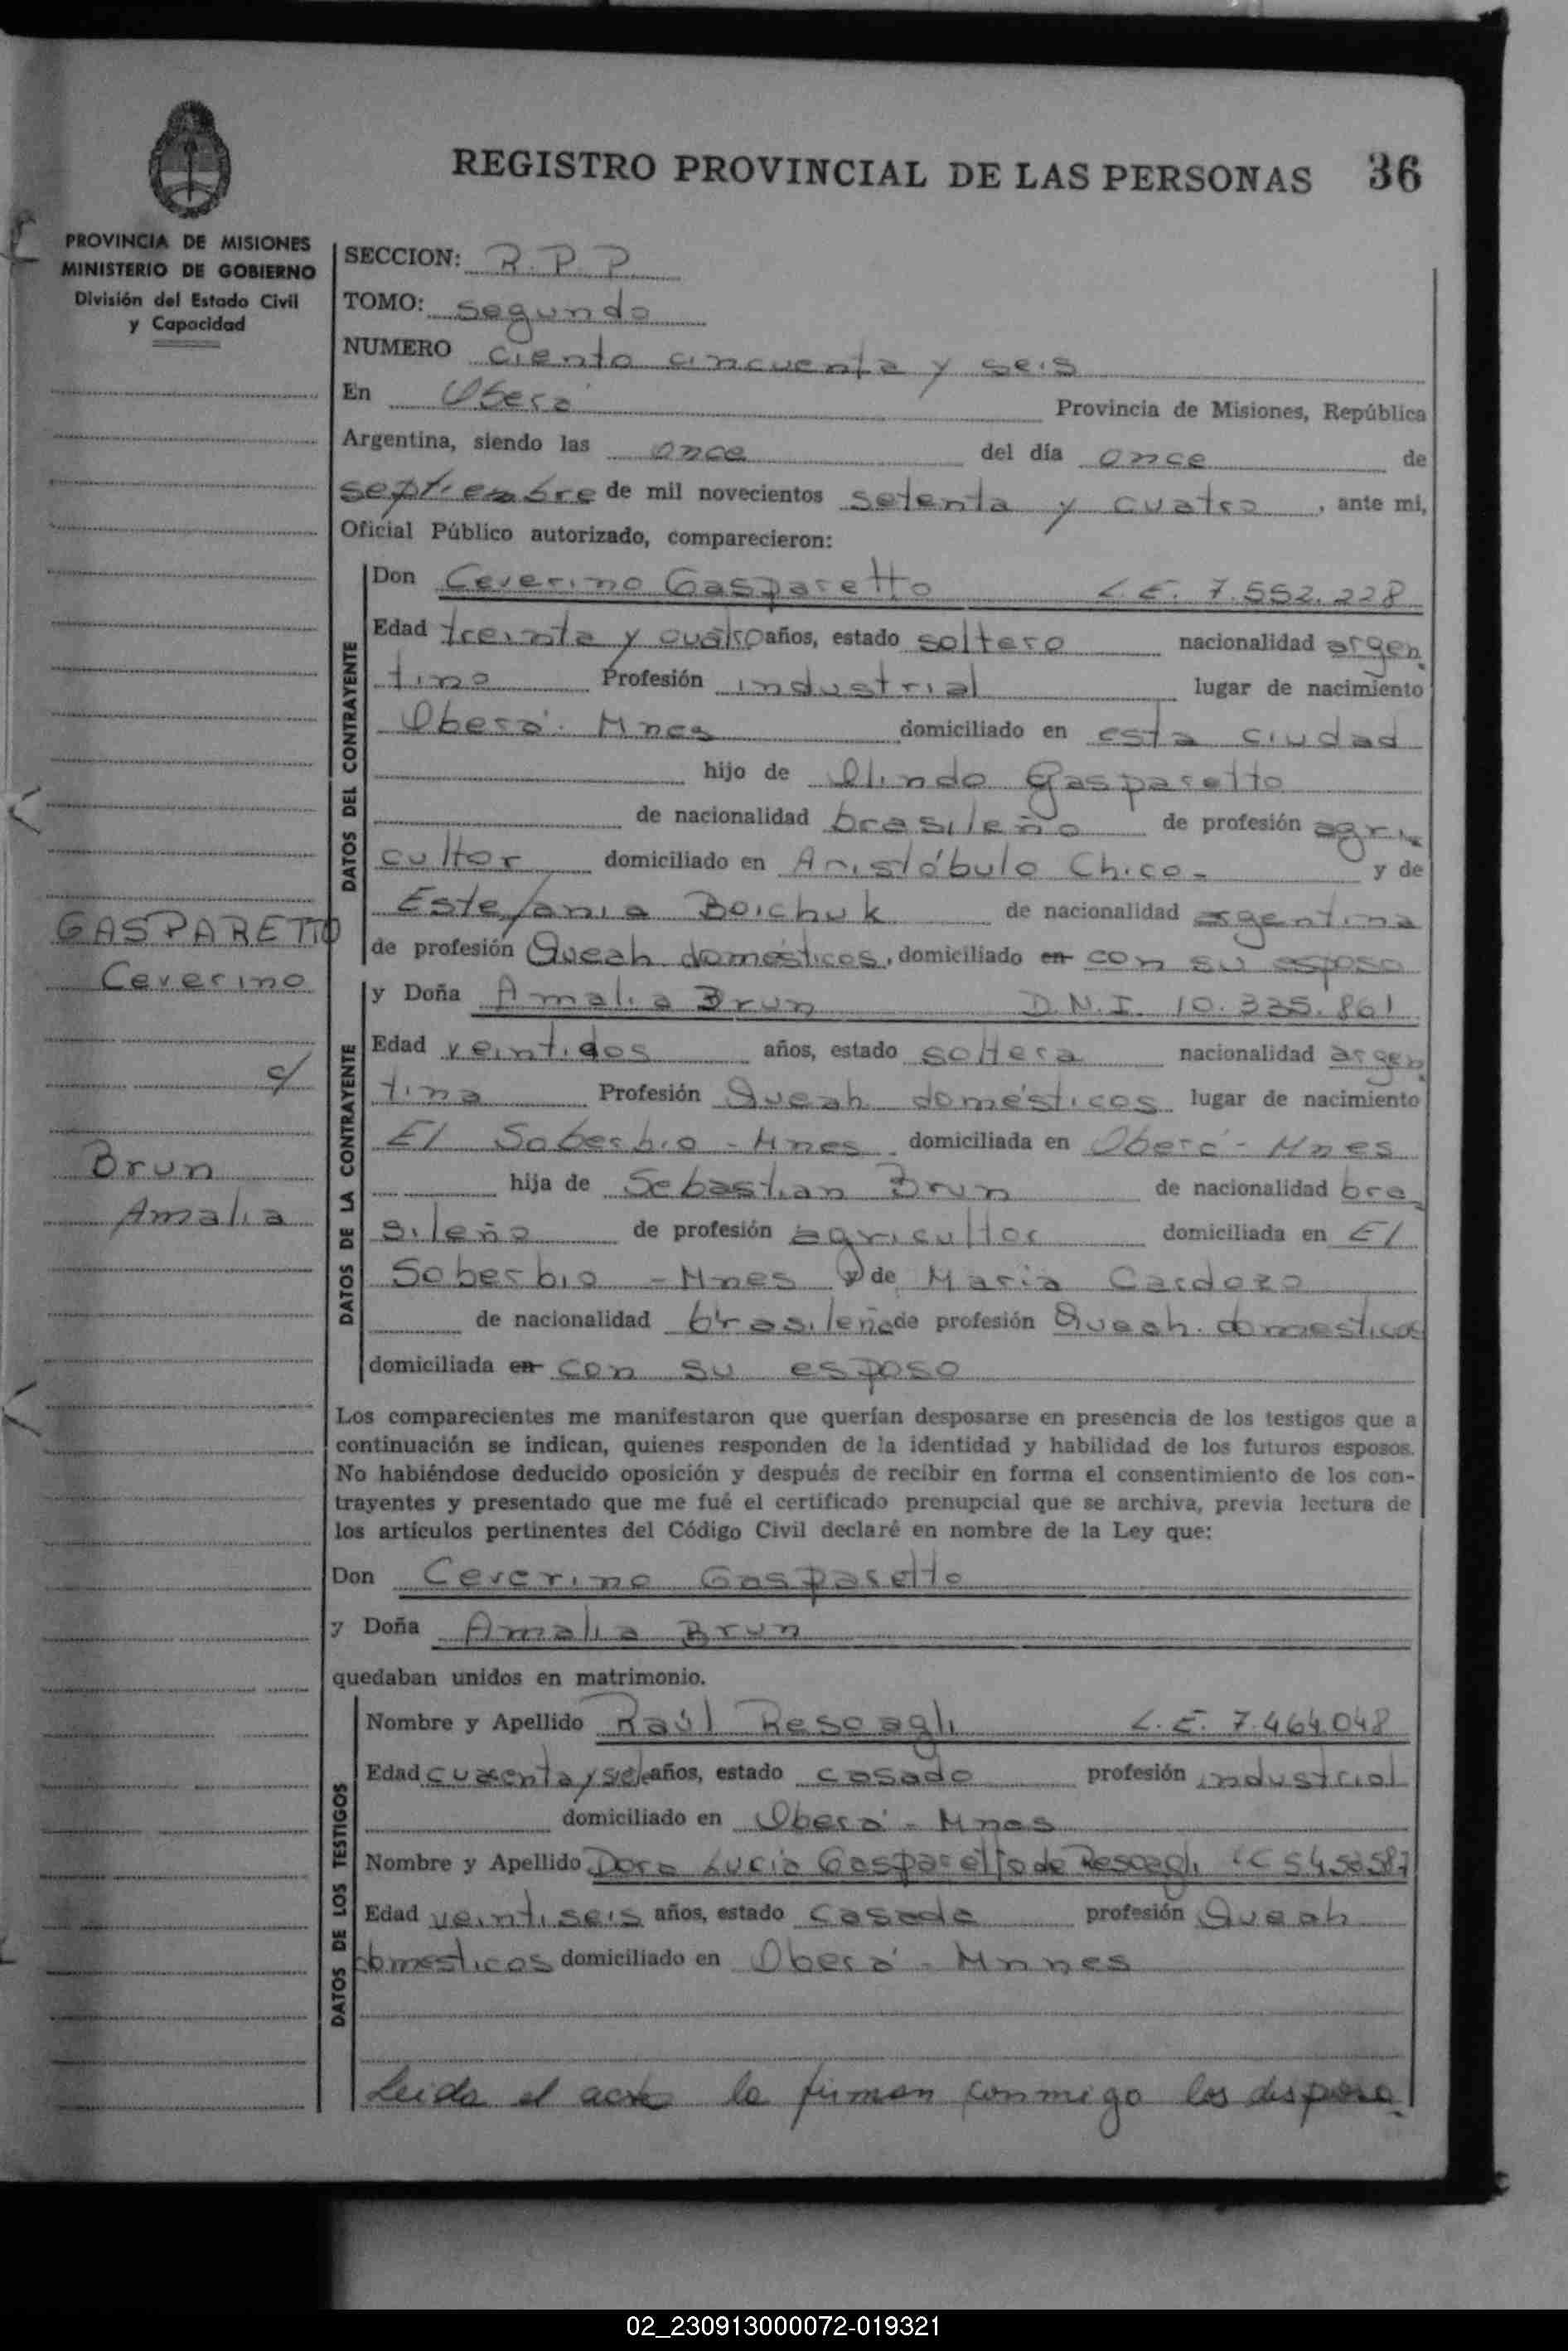 REGISTRO PROVINCIAL DE LAS PERSONAS 36
PROVINCIA DE MISIONES
MINISTERIO DE GOBIERNO
División del Estado Civil
y Capacidad
SECCION: R.P.P.
TOMO: segundo
NUMERO ciento cincuenta y seis
En Oberá Provincia de Misiones, República
Argentina, siendo las once del día once de
septiembre de mil novecientos setenta y cuatro, ante mi,
Oficial Público autorizado, comparecieron:
DATOS DEL CONTRAYENTE
Don Ceverino Gasparetto L.E. 7.552.228
Edad treinta y cuatro años, estado soltero nacionalidad argen
tino Profesión industrial lugar de nacimiento
Oberá - Mnes domiciliado en esta ciudad
hijo de Olindo Gasparetto
de nacionalidad brasileño de profesión agri
cultor domiciliado en Aristóbulo Chico - y de
Estefania Boichuk de nacionalidad argentina
de profesión Queah domésticos, domiciliado en con su esposo
GASPARETTO
Ceverino
c/
Brun
Amalia
DATOS DE LA CONTRAYENTE
y Doña Amalia Brun D.N.I. 10.335.861
Edad veintidos años, estado soltera nacionalidad argen
tina Profesión Queah domésticos lugar de nacimiento
El Soberbio - Mnes domiciliada en Oberá - Mnes
hija de Sebastian Brun de nacionalidad bra
sileño de profesión agricultor domiciliada en El
Soberbio - Mnes y de Maria Cardozo
de nacionalidad brasileña de profesión Queah. domesticos
domiciliada en con su esposo
Los comparecientes me manifestaron que querían desposarse en presencia de los testigos que a
continuación se indican, quienes responden de la identidad y habilidad de los futuros esposos.
No habiéndose deducido oposición y después de recibir en forma el consentimiento de los con-
trayentes y presentado que me fué el certificado prenupcial que se archiva, previa lectura de
los artículos pertinentes del Código Civil declaré en nombre de la Ley que:
Don Ceverino Gasparetto
y Doña Amalia Brun
quedaban unidos en matrimonio.
DATOS DE LOS TESTIGOS
Nombre y Apellido Raúl Rescagli L.E. 7.464.048
Edad años, estado casado profesión industrial
domiciliado en Oberá - Mnes
Nombre y Apellido Dora Lucia Gasparetto de Rescagli
Edad veintiseis años, estado casada profesión Queah
domesticos domiciliado en Oberá - Mnnes
Leida el acta la firman conmigo los desposa
02_230913000072-019321